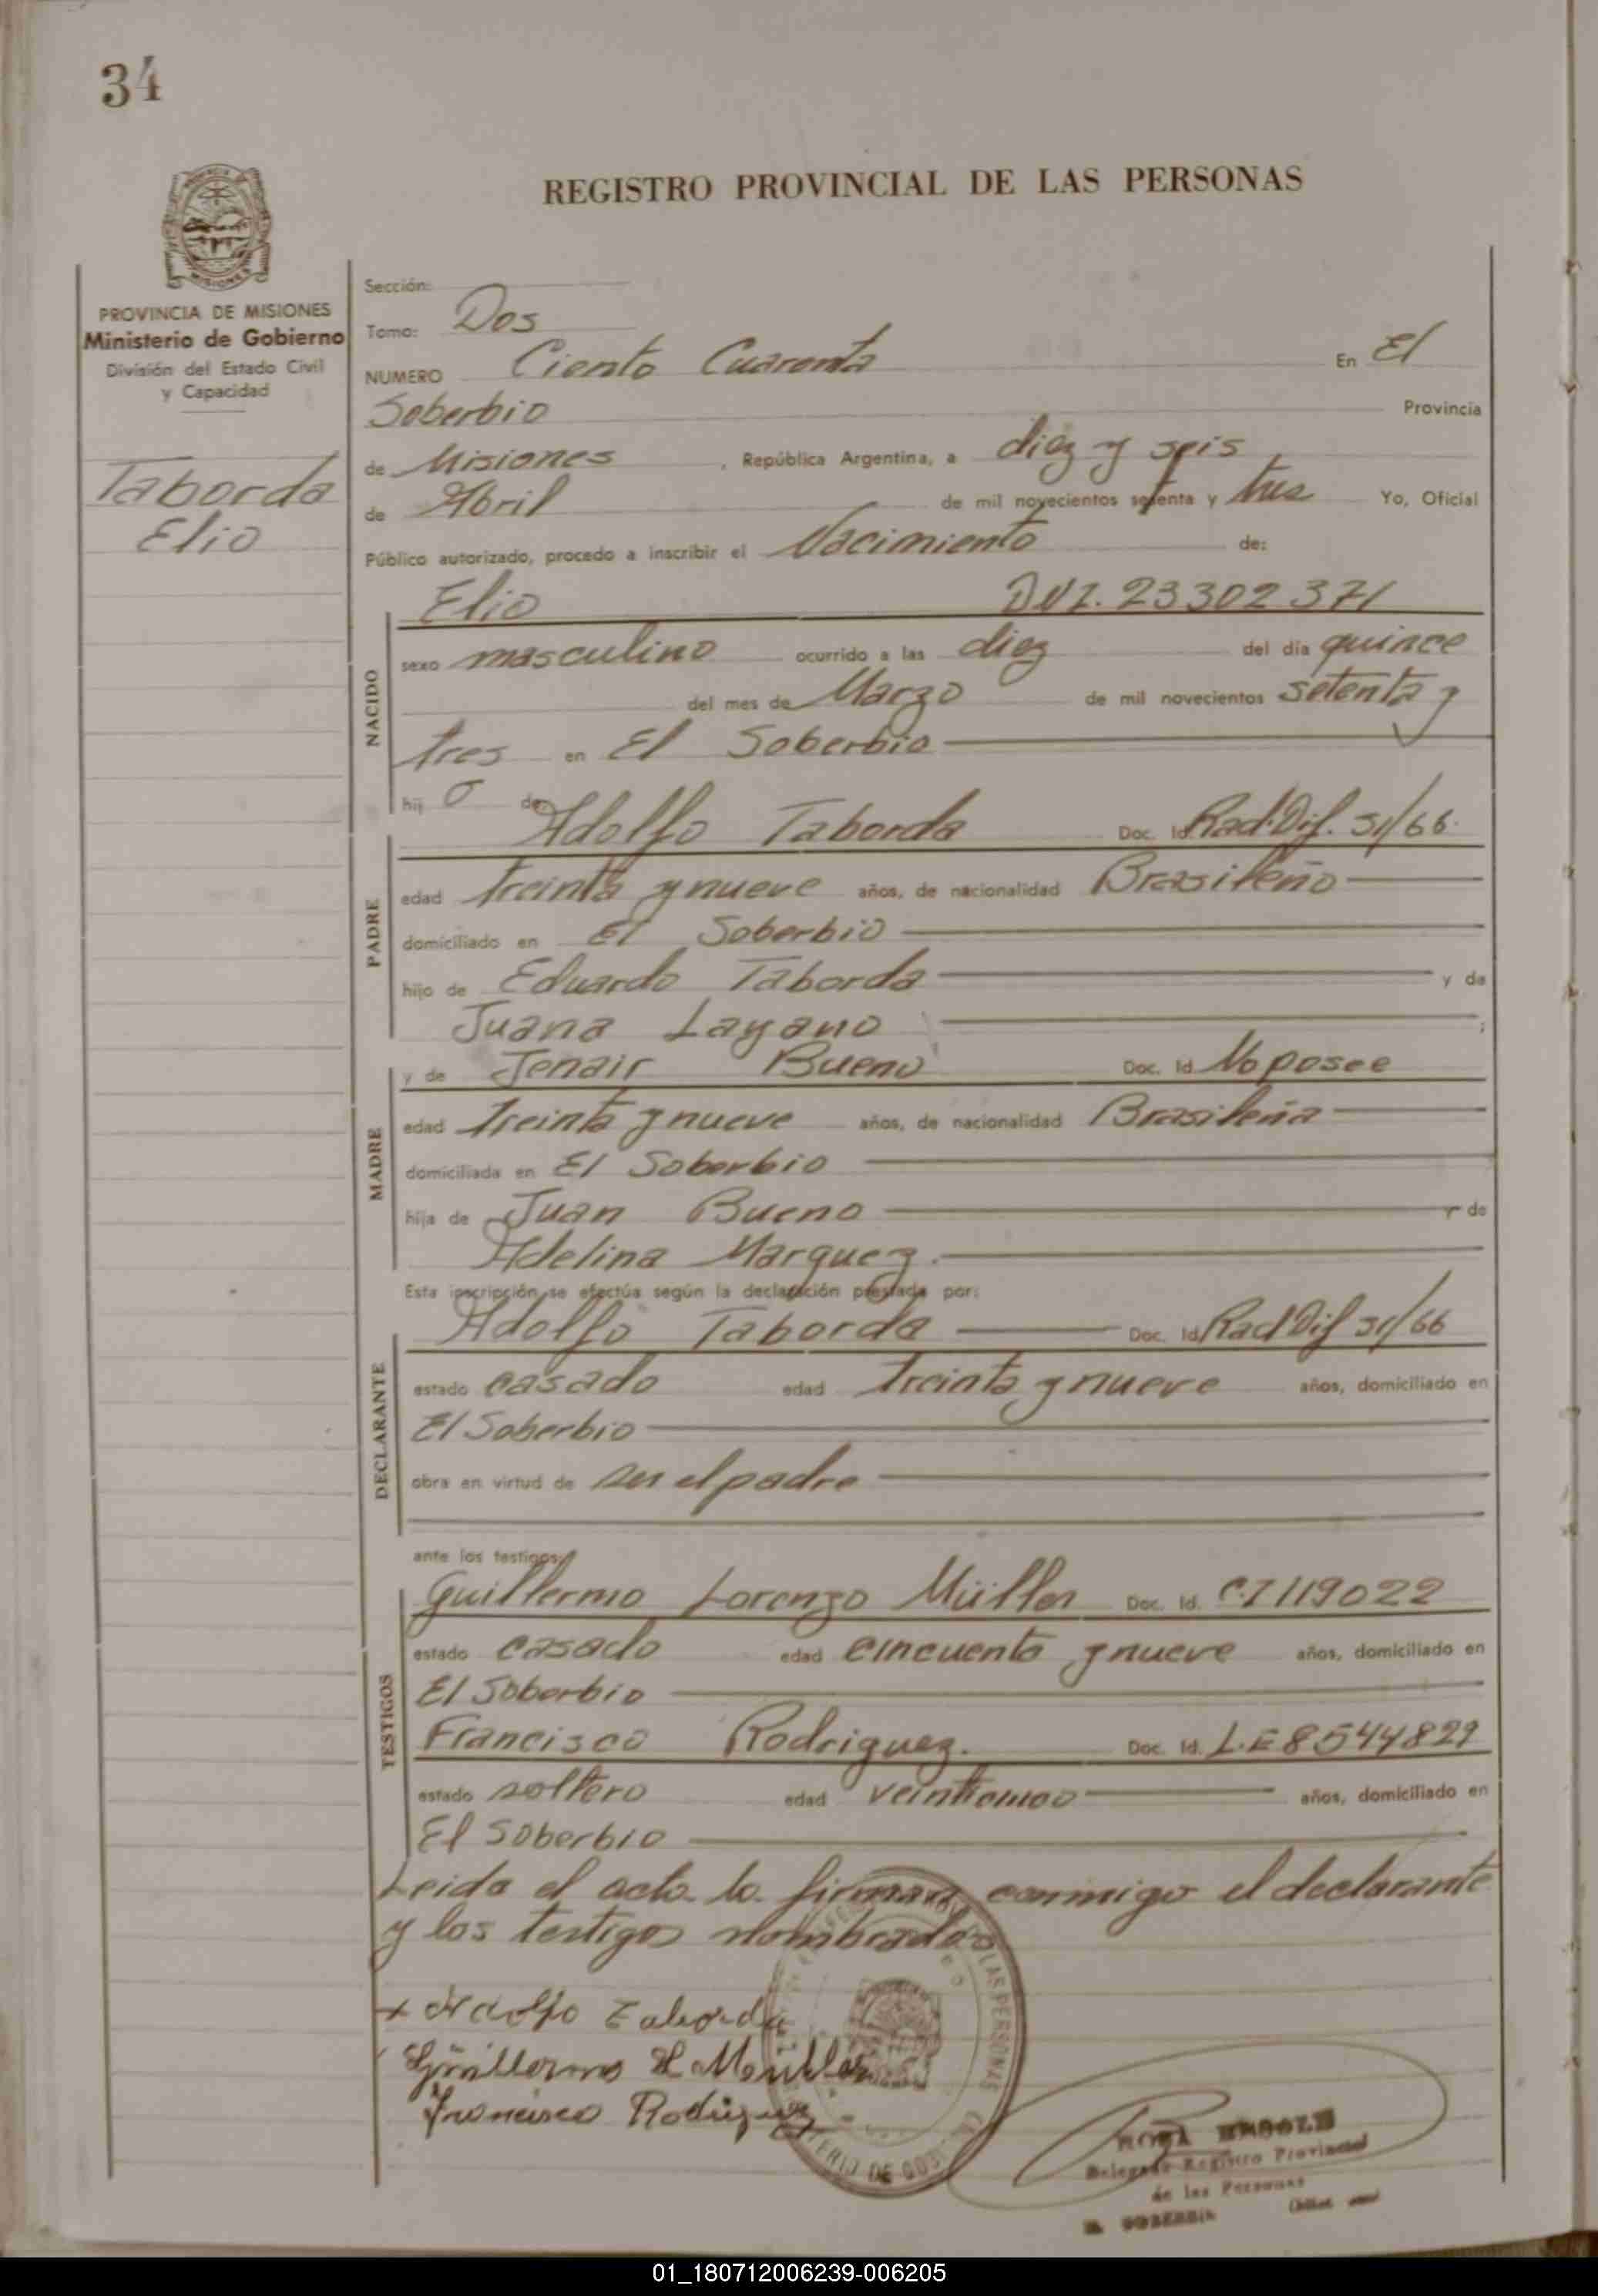 34
REGISTRO PROVINCIAL DE LAS PERSONAS
PROVINCIA DE MISIONES
Ministerio de Gobierno
División del Estado Civil
y Capacidad
Taborda
Elio
Sección:
Tomo: Dos
NUMERO Ciento Cuarenta En El
Soberbio Provincia
de Misiones, República Argentina, a diez y seis
de Abril de mil novecientos setenta y tres Yo, Oficial
Público autorizado, procedo a inscribir el Nacimiento de:
Elio DNI. 23302371
NACIDO
sexo masculino ocurrido a las diez del día quince
del mes de Marzo de mil novecientos setenta y
tres en El Soberbio
hij o de Adolfo Taborda Doc. Id. Rad.Dif. 51/66.
PADRE
edad treinta y nueve años, de nacionalidad Brasileño
domiciliado en El Soberbio
hijo de Eduardo Taborda y de
Juana Layano ;
y de Jenair Bueno Doc. Id. No posee
MADRE
edad treinta y nueve años, de nacionalidad Brasileña
domiciliada en El Soberbio
hija de Juan Bueno y de
Adelina Marquez.
Esta inscripción se efectúa según la declaración prestada por:
Adolfo Taborda Doc. Id. Rad Dif 51/66
DECLARANTE
estado casado edad treinta y nueve años, domiciliado en
El Soberbio
obra en virtud de ser el padre
ante los testigos:
Guillermo Lorenzo Müller Doc. Id. C.I 119022
TESTIGOS
estado casado edad cincuenta y nueve años, domiciliado en
El Soberbio
Francisco Rodriguez. Doc. Id. L.E 8544829
estado soltero edad veinticinco años, domiciliado en
El Soberbio
Leida el acta la firman conmigo el declarante
y los testigos nombrados
x Adolfo Taborda
Guillermo L. Muller
Francisco Rodriguez
LAS PERSONAS
ROSA
Delegada Registro Provincial
de las Personas
EL SOBERBIO
01_180712006239-006205